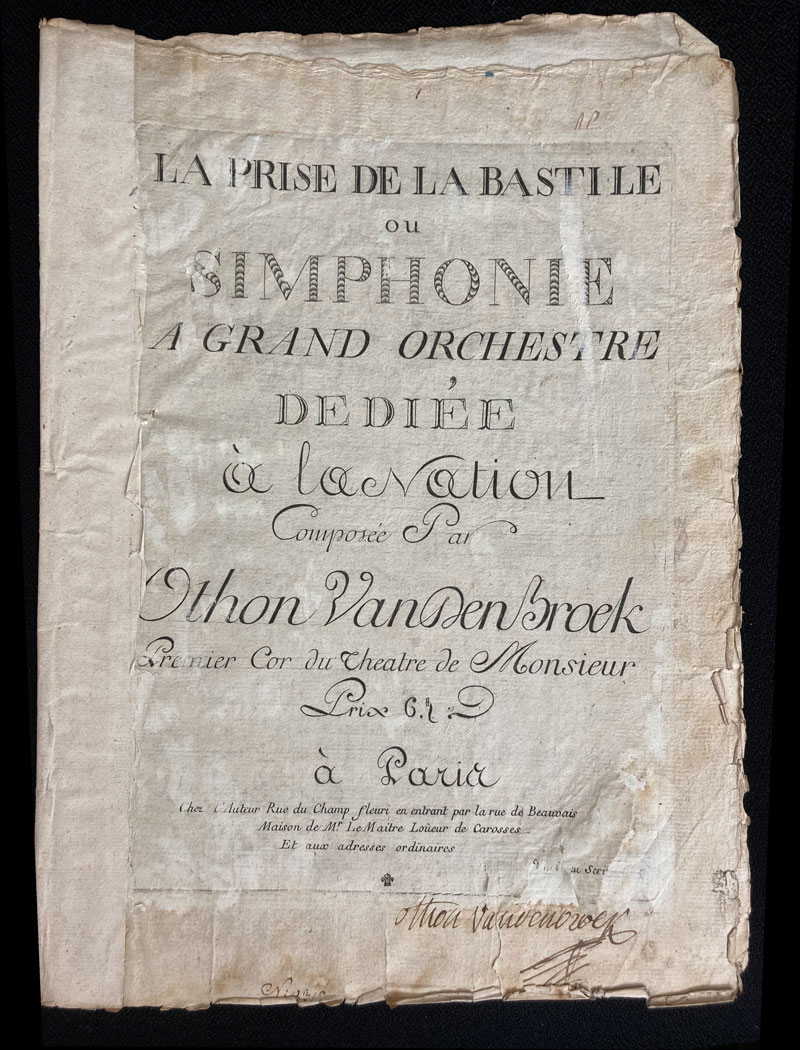 LA PRISE DE LA BASTILE
OU
SIMPHONIE
A GRAND ORCHESTRE
DEDIÉE
à la Nation
Composée Par
Othon VanDenBroek
Premier Cor du Theatre de Monsieur
Prix 6.₶
à Paris
Chez l'Auteur Rue du Champ fleuri en entrant par la rue de Beauvais
Maison de Mr. Le Maitre Loüeur de Carosses
Et aux adresses ordinaires
othon vandenbroek